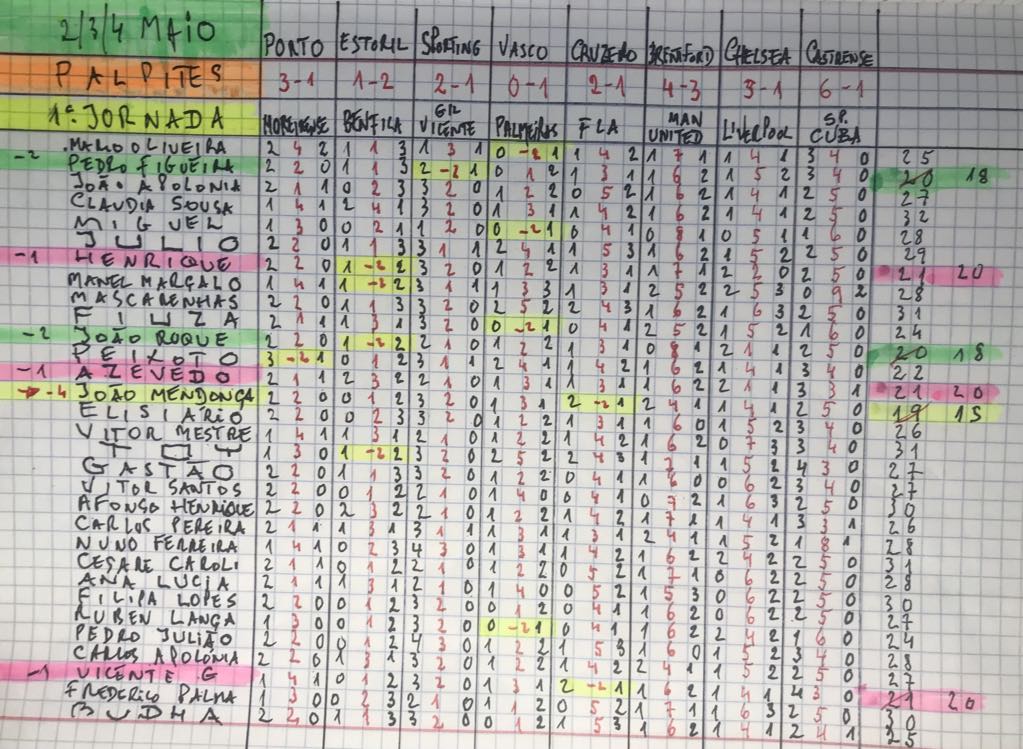 2/3/4 MAIO PORTO ESTORIL SPORTING VASCO CRUZEIRO BRENTFORD CHELSEA CASTRENSE
PALPITES 3-1 1-2 2-1 0-1 2-1 4-3 3-1 6-1
1ª JORNADA MOREIRENSE BENFICA GIL VICENTE PALMEIRAS FLA MAN UNITED LIVERPOOL SP. CUBA
MARIO OLIVEIRA 2 4 2 1 1 3 1 3 1 0 -2 1 1 4 2 1 7 1 1 4 1 3 4 0 25
-2 PEDRO FIGUEIRA 2 2 0 1 1 3 2 -2 1 0 1 2 1 3 1 1 6 2 1 5 2 3 4 0 20 18
JOÃO APOLONIA 2 1 1 0 2 3 3 2 0 1 2 2 0 5 2 1 6 2 1 4 1 2 5 0 27
CLAUDIA SOUSA 1 4 1 2 4 1 3 2 0 1 3 1 1 4 2 1 6 2 1 4 1 2 5 0 32
MIGUEL 1 3 0 0 2 1 1 2 0 0 -2 1 0 4 1 0 8 1 0 5 1 1 6 0 28
JULIO 2 2 0 1 1 3 3 1 1 2 4 1 1 5 3 1 6 2 1 5 2 2 5 0 29
-1 HENRIQUE 2 2 0 1 -2 2 3 2 0 1 2 2 1 3 1 1 7 1 2 2 0 2 5 0 21 20
MANEL MARGALO 1 4 1 1 -2 2 3 1 1 1 3 3 1 3 1 2 5 2 2 5 3 0 9 2 28
MASCARENHAS 2 2 0 1 1 3 3 2 0 2 5 2 2 4 3 1 6 2 1 6 3 2 5 0 31
FIUZA 2 1 1 1 3 1 3 2 0 0 -2 1 0 4 1 2 5 2 1 5 2 1 6 0 24
-2 JOÃO ROQUE 2 2 0 1 -2 2 2 1 0 1 2 2 1 3 1 0 8 1 2 1 1 2 5 0 20 18
PEIXOTO 3 -2 1 0 1 2 3 1 1 2 4 1 1 4 2 1 6 2 1 4 1 3 4 0 22
-1 AZEVEDO 2 1 1 2 3 2 2 1 0 1 3 1 1 3 1 1 6 2 2 1 1 3 3 1 21 20
-4 JOÃO MENDONÇA 2 2 0 0 1 2 3 2 0 1 3 1 2 -2 1 2 4 1 1 4 1 2 5 0 19 15
ELISIARIO 2 2 0 0 2 3 3 2 0 1 2 2 1 3 1 1 6 0 1 5 2 3 4 0 26
VITOR MESTRE 1 4 1 1 3 1 2 1 0 1 2 2 1 4 2 1 6 2 0 7 3 3 4 0 31
TOY 1 3 0 1 -2 2 3 2 0 2 5 2 2 4 3 1 7 1 1 5 2 4 3 0 27
GASTÃO 2 2 0 1 1 3 3 2 0 1 2 2 0 4 1 1 6 0 0 6 2 3 4 0 27
VITOR SANTOS 2 2 0 0 1 2 2 1 0 1 4 0 0 4 1 0 7 2 1 6 3 2 5 0 30
AFONSO HENRIQUE 2 2 0 2 3 2 2 1 0 1 2 2 1 4 2 1 7 1 1 4 1 3 3 1 26
CARLOS PEREIRA 2 1 1 1 3 1 3 1 1 1 3 1 1 3 1 2 4 1 1 5 2 1 8 1 28
NUNO FERREIRA 1 4 1 0 2 3 4 3 0 1 3 1 1 4 2 1 6 2 2 4 2 2 5 0 31
CESARE CAROLI 2 1 1 0 1 2 2 1 0 1 2 2 0 5 2 1 7 1 0 6 2 2 5 0 28
ANA LUCIA 2 1 1 1 3 1 2 1 0 1 4 0 0 5 2 1 5 3 0 6 2 2 5 0 30
FILIPA LOPES 2 2 0 0 1 2 3 2 0 0 1 2 0 4 1 1 6 2 0 6 2 2 5 0 27
RUBEN LANGA 1 3 0 0 1 2 3 2 0 0 -2 1 0 4 1 1 6 2 2 4 2 1 6 0 24
PEDRO JULIÃO 2 2 0 0 1 2 4 3 0 1 2 2 1 5 3 1 6 0 1 5 2 3 4 0 28
CARLOS APOLÓNIA 2 2 0 1 3 1 3 2 0 1 2 2 1 4 2 2 4 1 1 5 2 2 5 0 27
-1 VICENTE G 1 4 1 0 1 2 3 2 0 1 3 1 2 -2 1 1 6 2 1 4 1 4 3 0 21 20
FREDERICO PALMA 1 3 0 0 2 3 2 1 0 1 2 0 5 2 1 7 1 1 6 3 2 5 0 30
BUDHA 2 2 0 1 1 3 3 2 0 0 1 2 1 5 3 1 6 2 1 4 1 2 4 1 25